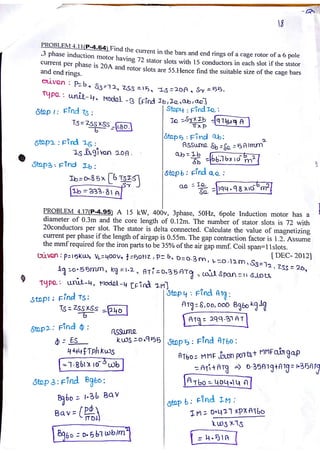 18
PROBLEM 4.11(P-4.64) Find the current in the bars and end rings of a cage rotor of a 6 pole
,3 phase induction motor having 72 stator slots with 15 conductors in each slot if the stator
current per phase is 20A and rotor slots are 55.Hence find the suitable size of the cage bars
and end rings.
Given: P=6, Ss=72, Zss=15, Is=20A, Sr=55.
Type: unit-4, Model-3 [Find Ib, Ie, ab, ae]
Step 1: Find Ts:
Ts = Zss×Ss / 6 = 180
Step 2: Find Is:
Is given 20A.
Step 3: Find Ib:
Ib = 0.85× [6TsIs / Sr]
Ib = 333.81 A
Step 4: Find Ie:
Ie = Sr×Ib / π×P = 974.9 A
Step 5: Find ab:
Assume δb=δe=5A/mm²
ab = Ib / δb = 66.76×10⁻⁶ m²
Step 6: Find ae:
ae = Ie / δe = 194.98×10⁻⁶ m²
PROBLEM 4.17(P-4.95) A 15 kW, 400v, 3phase, 50Hz, 6pole Induction motor has a
diameter of 0.3m and the core length of 0.12m. The number of stator slots is 72 with
20conductors per slot. The stator is delta connected. Calculate the value of magnetizing
current per phase if the length of airgap is 0.55m. The gap contraction factor is 1.2. Assume
the mmf required for the iron parts to be 35% of the air gap mmf. Coil span=11slots.
[ DEC- 2012]
Given: P=15KW, VL=400V, f=50Hz, P=6, D=0.3m, L=0.12m, Ss=72, Zss=20,
lg=0.55mm, kg=1.2, ATi=0.35ATg, coil span=11 slots
Type: unit-4, model-4 [Find IM]
Step 1: Find Ts:
Ts = Zss×Ss / 6 = 240
Step 2: Find Φ:
Assume
Φ = Es / 4.44fTphkws
kws=0.955
= 7.861×10⁻³ wb
Step 3: Find Bg60:
Bg60 = 1.36 Bav
Bav = (PΦ / πDL)
Bg60 = 0.567 wb/m²
Step 4: Find ATg:
ATg = 8,00,000 Bg60 kg lg
ATg = 299.37AT
Step 5: Find AT60:
AT60 = MMF iron part + MMF airgap
= ATi+ATg ⇒ 0.35ATg+ATg = 1.35ATg
AT60 = 404.14 A
Step 6: Find IM:
IM = 0.427×P×AT60 / kws×Ts
= 4.51A